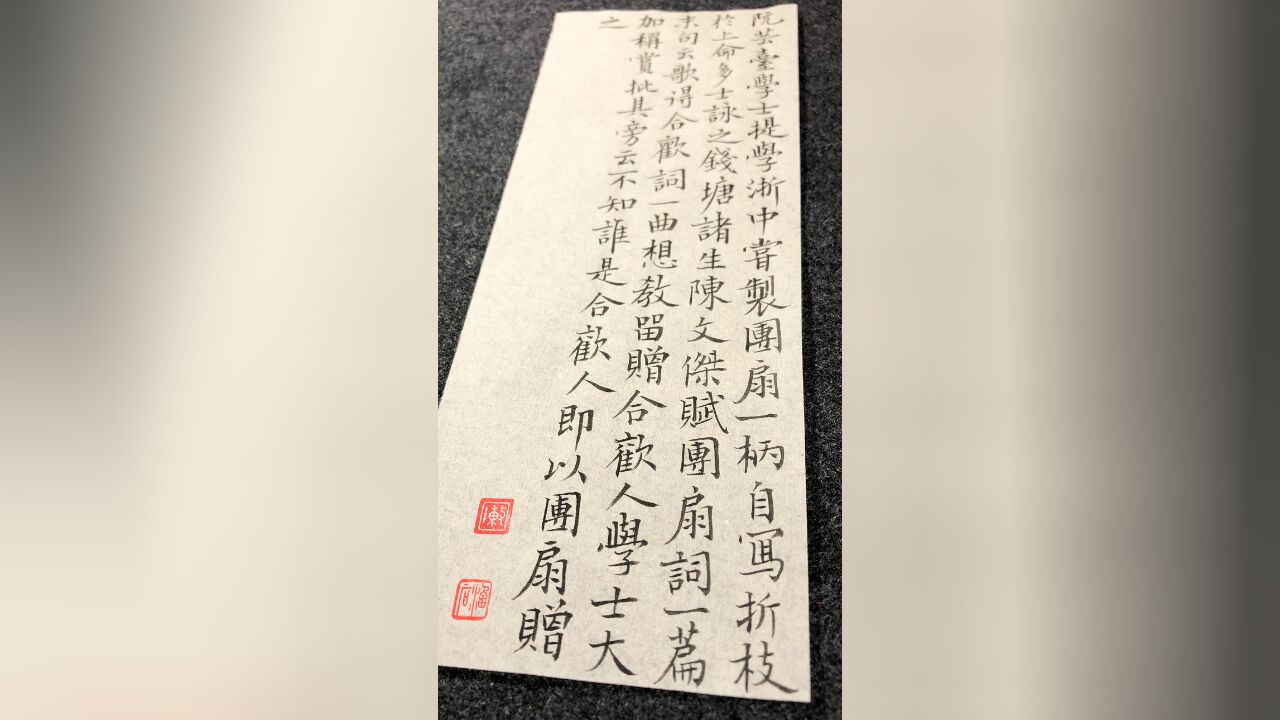 阮芸臺學士提學浙中嘗製團扇一柄自寫折枝
於上命多士詠之錢塘諸生陳文傑賦團扇詞一篇
末句云歌得合歡詞一曲想教留贈合歡人學士大
加稱賞批其旁云不知誰是合歡人即以團扇贈
之